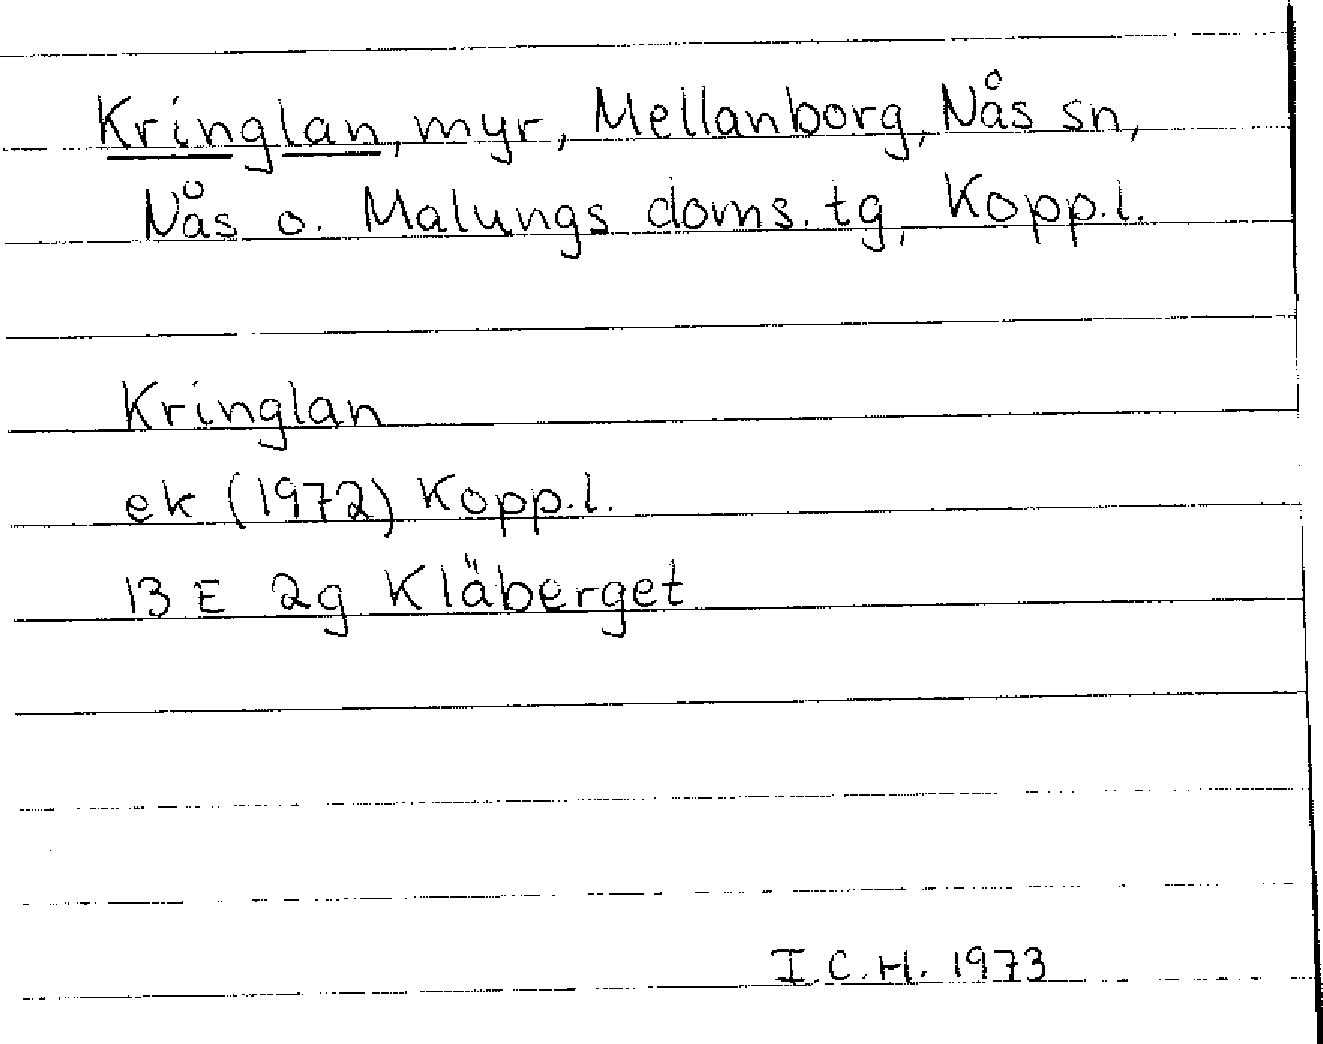 Kringlan, myr, Mellanborg, Nås sn,
Nås o. Malungs doms. tg, Kopp.l.
Kringlan
ek (1972) Kopp.l.
13 E 2g Kläberget
I.C.H. 1973